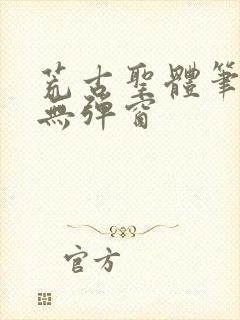 荒古聖體筆
無彈窗
官方